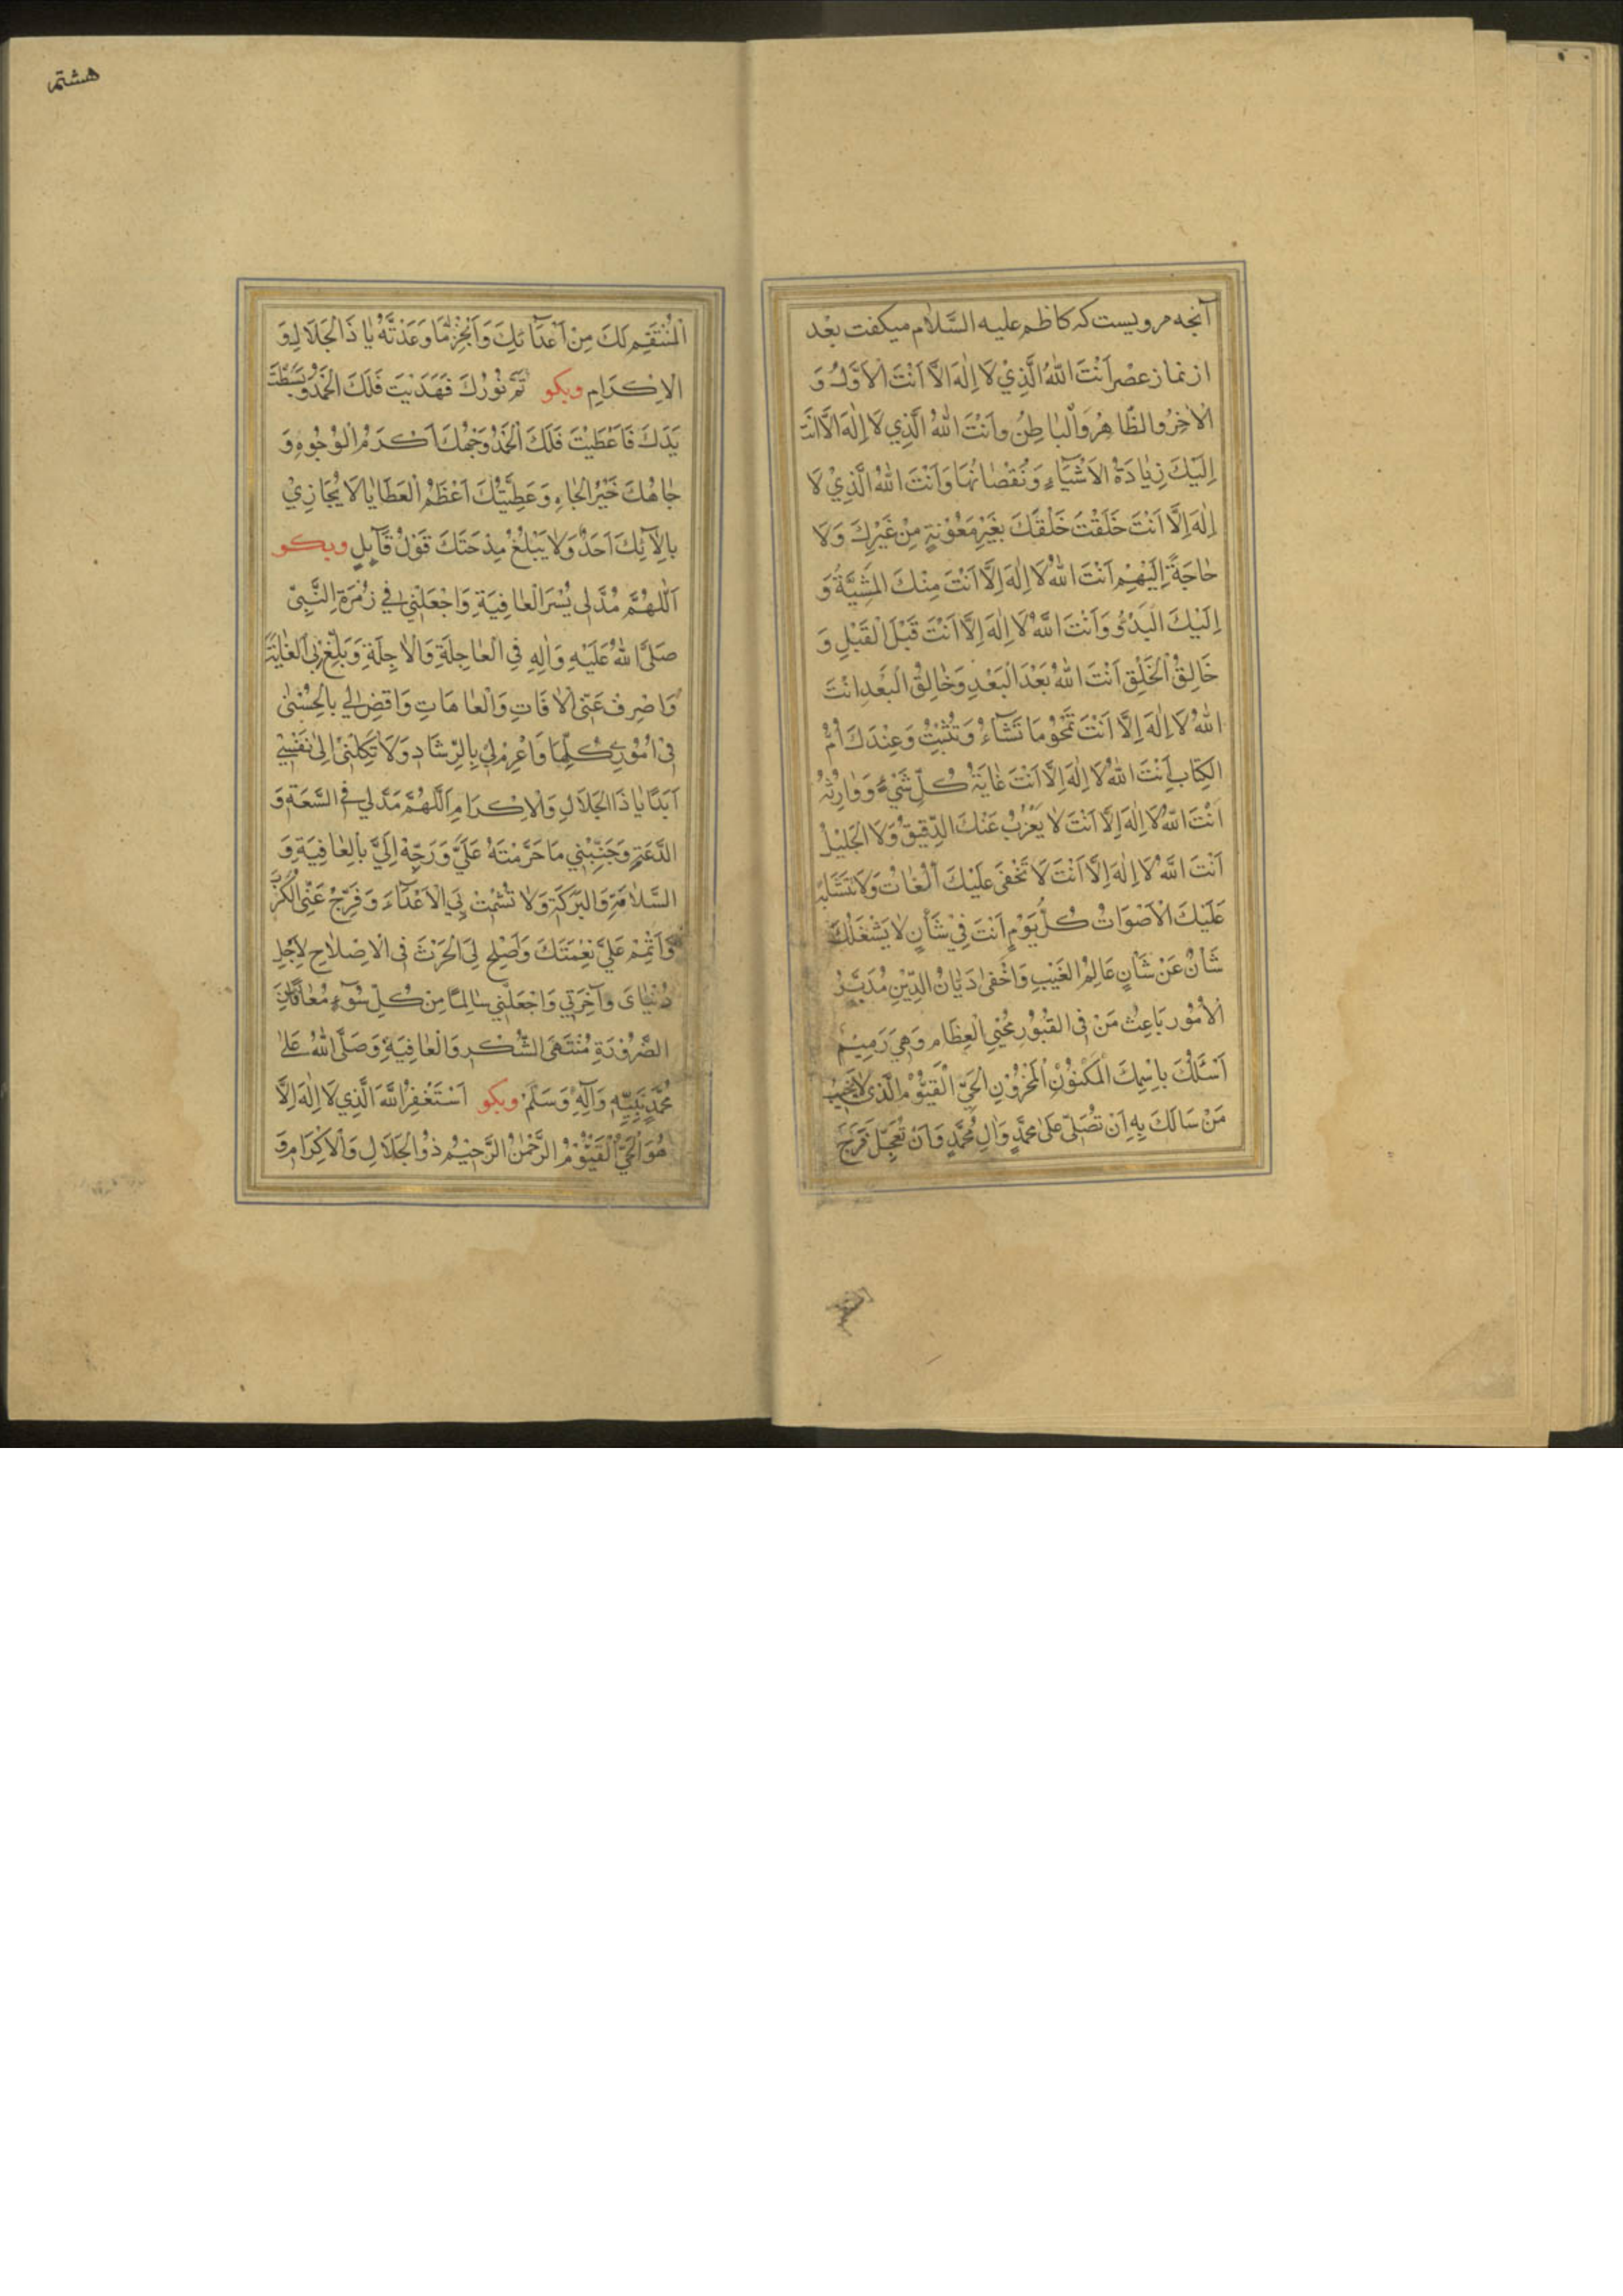 آنچه مرویست که کاظم علیه السَّلام میکفت بعْد
از نماز عصْر اَنْتَ اللّٰهُ الَّذِيْ لَا اِلٰهَ اِلَّا اَنْتَ الْاَوَّلُ وَ
الْاٰخِرُ وَالظَّاهِرُ وَالْبَاطِنُ وَاَنْتَ اللّٰهُ الَّذِي لَا اِلٰهَ اِلَّا اَنْتَ
اِلَيْكَ زِيَادَةُ الْاَشْيَآءِ وَنُقْصَانُهَا وَاَنْتَ اللّٰهُ الَّذِيْ لَا
اِلٰهَ اِلَّا اَنْتَ خَلَقْتَ خَلْقَكَ بِغَيْرِ مَعُوْنَةٍ مِنْ غَيْرِكَ وَلَا
حَاجَةً اِلَيْهِمْ اَنْتَ اللّٰهُ لَا اِلٰهَ اِلَّا اَنْتَ مِنْكَ الْمَشِيَّةُ وَ
اِلَيْكَ الْبَدْءُ وَاَنْتَ اللّٰهُ لَا اِلٰهَ اِلَّا اَنْتَ قَبْلَ الْقَبْلِ وَ
خَالِقُ الْخَلْقِ اَنْتَ اللّٰهُ بَعْدَ الْبَعْدِ وَخَالِقُ الْبَعْدِ اَنْتَ
اللّٰهُ لَا اِلٰهَ اِلَّا اَنْتَ تَمْحُوْ مَا تَشَآءُ وَتُثْبِتُ وَعِنْدَكَ اُمُّ
الْكِتَابِ اَنْتَ اللّٰهُ لَا اِلٰهَ اِلَّا اَنْتَ غَايَةُ كُلِّ شَيْءٍ وَوَارِثُهُ
اَنْتَ اللّٰهُ لَا اِلٰهَ اِلَّا اَنْتَ لَا يَعْزُبُ عَنْكَ الدَّقِيقُ وَلَا الْجَلِيْلُ
اَنْتَ اللّٰهُ لَا اِلٰهَ اِلَّا اَنْتَ لَا تَخْفَى عَلَيْكَ اللُّغَاتُ وَلَا تَتَشَابَهُ
عَلَيْكَ الْاَصْوَاتُ كُلَّ يَوْمٍ اَنْتَ فِيْ شَأْنٍ لَا يَشْغَلُكَ
شَأْنٌ عَنْ شَأْنٍ عَالِمُ الْغَيْبِ وَاَخْفٰى دَيَّانُ الدِّيْنِ مُدَبِّرُ
الْاُمُوْرِ بَاعِثُ مَنْ فِي الْقُبُوْرِ مُحْيِي الْعِظَامِ وَهِيَ رَمِيْمٌ
اَسْئَلُكَ بِاسْمِكَ الْمَكْنُوْنِ الْمَخْزُوْنِ الْحَيِّ الْقَيُّوْمِ الَّذِي لَا يَخِيْبُ
مَنْ سَالَكَ بِهِ اَنْ تُصَلِّيَ عَلٰى مُحَمَّدٍ وَاٰلِ مُحَمَّدٍ وَاَنْ تُعَجِّلَ فَرَجَ
هشتم
الْمُنْتَقِمِ لَكَ مِنْ اَعْدَآئِكَ وَاَنْجِزْ مَا وَعَدْتَهُ يَا ذَا الْجَلَالِ وَ
الْاِكْرَامِ وبکو تَمَّ نُوْرُكَ فَهَدَيْتَ فَلَكَ الْحَمْدُ وَبَسَطْتَ
يَدَكَ فَاَعْطَيْتَ فَلَكَ الْحَمْدُ وَجْهُكَ اَكْرَمُ الْوُجُوْهِ وَ
جَاهُكَ خَيْرُ الْجَاهِ وَعَطِيَّتُكَ اَعْظَمُ الْعَطَايَا لَا يُجَازِيْ
بِاٰلَآئِكَ اَحَدٌ وَلَا يَبْلُغُ مِدْحَتَكَ قَوْلُ قَآئِلٍ وبکو
اَللّٰهُمَّ مُدَّ لِي يُسْرَ الْعَافِيَةِ وَاجْعَلْنِي فِي زُمْرَةِ النَّبِيِّ
صَلَّى اللّٰهُ عَلَيْهِ وَاٰلِهِ فِي الْعَاجِلَةِ وَالْاٰجِلَةِ وَبَلِّغْ بِيَ الْغَايَةَ
وَاصْرِفْ عَنِّي الْاٰفَاتِ وَالْعَاهَاتِ وَاقْضِ لِي بِالْحُسْنٰى
فِيْ اُمُوْرِي كُلِّهَا وَاعْزِمْ لِيْ بِالرِّشَادِ وَلَا تَكِلْنِيْ اِلٰى نَفْسِيْ
اَبَدًا يَا ذَا الْجَلَالِ وَالْاِكْرَامِ اَللّٰهُمَّ مُدَّ لِي فِي السَّعَةِ وَ
الدَّعَةِ وَجَنِّبْنِي مَا حَرَّمْتَهُ عَلَيَّ وَوَجِّهْ اِلَيَّ بِالْعَافِيَةِ وَ
السَّلَامَةِ وَالْبَرَكَةِ وَلَا تُشْمِتْ بِيَ الْاَعْدَآءَ وَفَرِّجْ عَنِّي الْكَرْبَ
وَاَتْمِمْ عَلَيَّ نِعْمَتَكَ وَاَصْلِحْ لِيَ الْحَرْثَ فِي الْاِصْلَاحِ لِاَجْلِ
دُنْيَايَ وَآخِرَتِي وَاجْعَلْنِي سَالِمًا مِنْ كُلِّ سُوْءٍ مُعَافًا مِنَ
الضَّرُوْرَةِ مُنْتَهَى الشُّكْرِ وَالْعَافِيَةِ وَصَلَّى اللّٰهُ عَلٰى
مُحَمَّدٍ نَبِيِّهِ وَآلِهِ وَسَلَّمَ وبکو اَسْتَغْفِرُ اللّٰهَ الَّذِي لَا اِلٰهَ اِلَّا
هُوَ الْحَيُّ الْقَيُّوْمُ الرَّحْمٰنُ الرَّحِيْمُ ذُو الْجَلَالِ وَالْاِكْرَامِ وَ